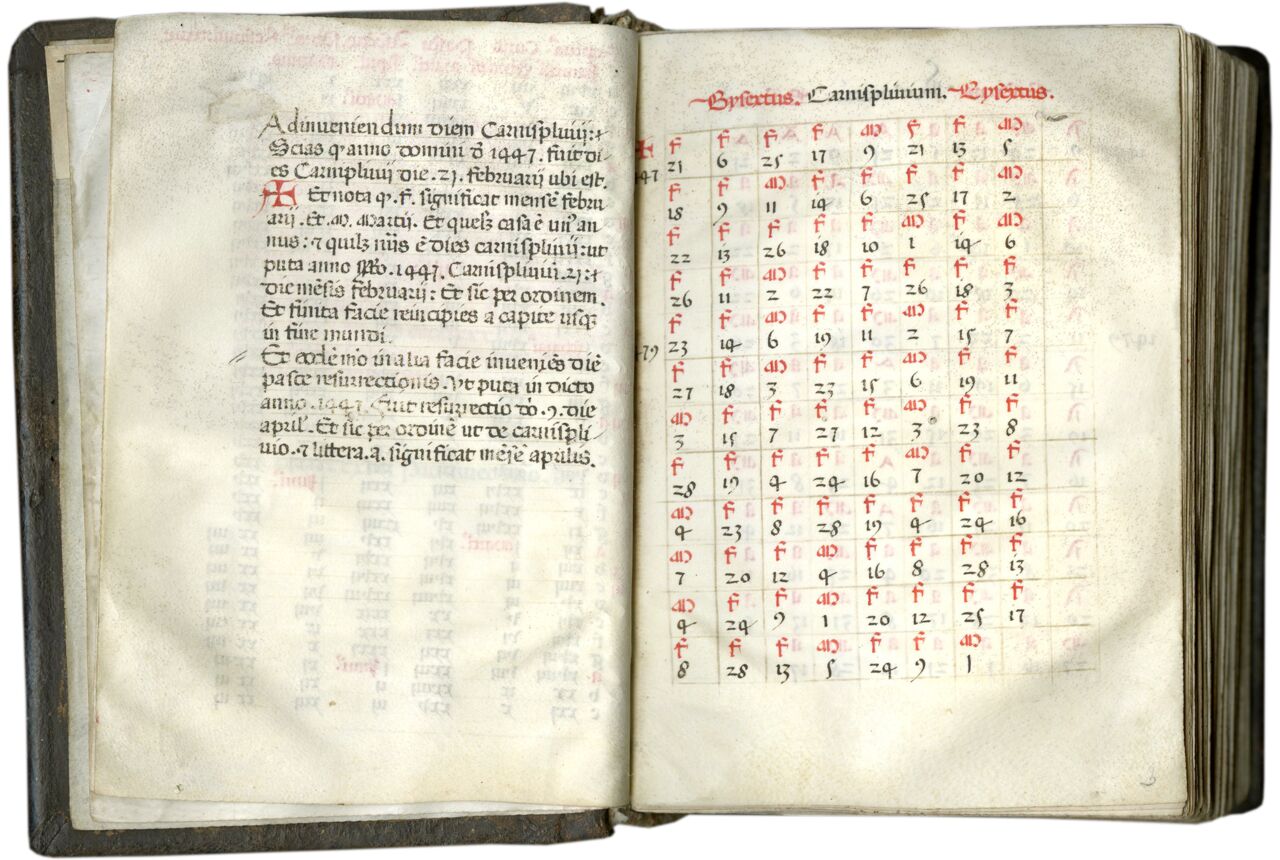 Ad inveniendum diem Carnisplivii:
Scias q anno domini d 1447. fuit di
es Carniplivii die .21. februarii ubi est.
✠ Et nota q. f. significat mensē febru
arii. Et .M. Martii. Et quelꝫ casa ē un' an
nus: ⁊ quilꝫ nūs ē dies carnisplivii: ut
puta anno .1447. Carnisplivium .21:
die mēsis februarii: Et sic per ordinem.
Et finita facie reincipies a capite usqꝫ
in fine mundi.
Et ecclē in alia facie invenies diē
pasce resurrectionis. Ut puta in dicto
anno .1447. Fuit resurrectio .9. die
april'. Et sic per ordinē ut de carnispli
vio. ⁊ littera .a. significat mēsē aprilis.
Bysextus. Carnisplivium. Bysextus.
✠ f f f f M f f M
47 21 6 25 17 9 21 13 5
f f M f f f f M
18 9 11 14 6 25 17 2
f f f f f M f M
22 13 26 18 10 1 14 6
f f M f M f f M
26 11 2 22 7 26 18 3
f f M f M M f M
79 23 14 6 19 11 2 15 7
f f M f f M f M
27 18 3 23 15 6 19 11
M f f f f M f f
3 15 7 27 12 3 23 8
f f f f f M f f
28 19 4 24 16 7 20 12
M f f f f f f f
4 23 8 28 19 4 24 16
M f f M f f f f
7 20 12 4 16 8 28 13
M f f M f f f f
4 24 9 1 20 12 25 17
f f f M f f M
8 28 13 5 24 9 1
3